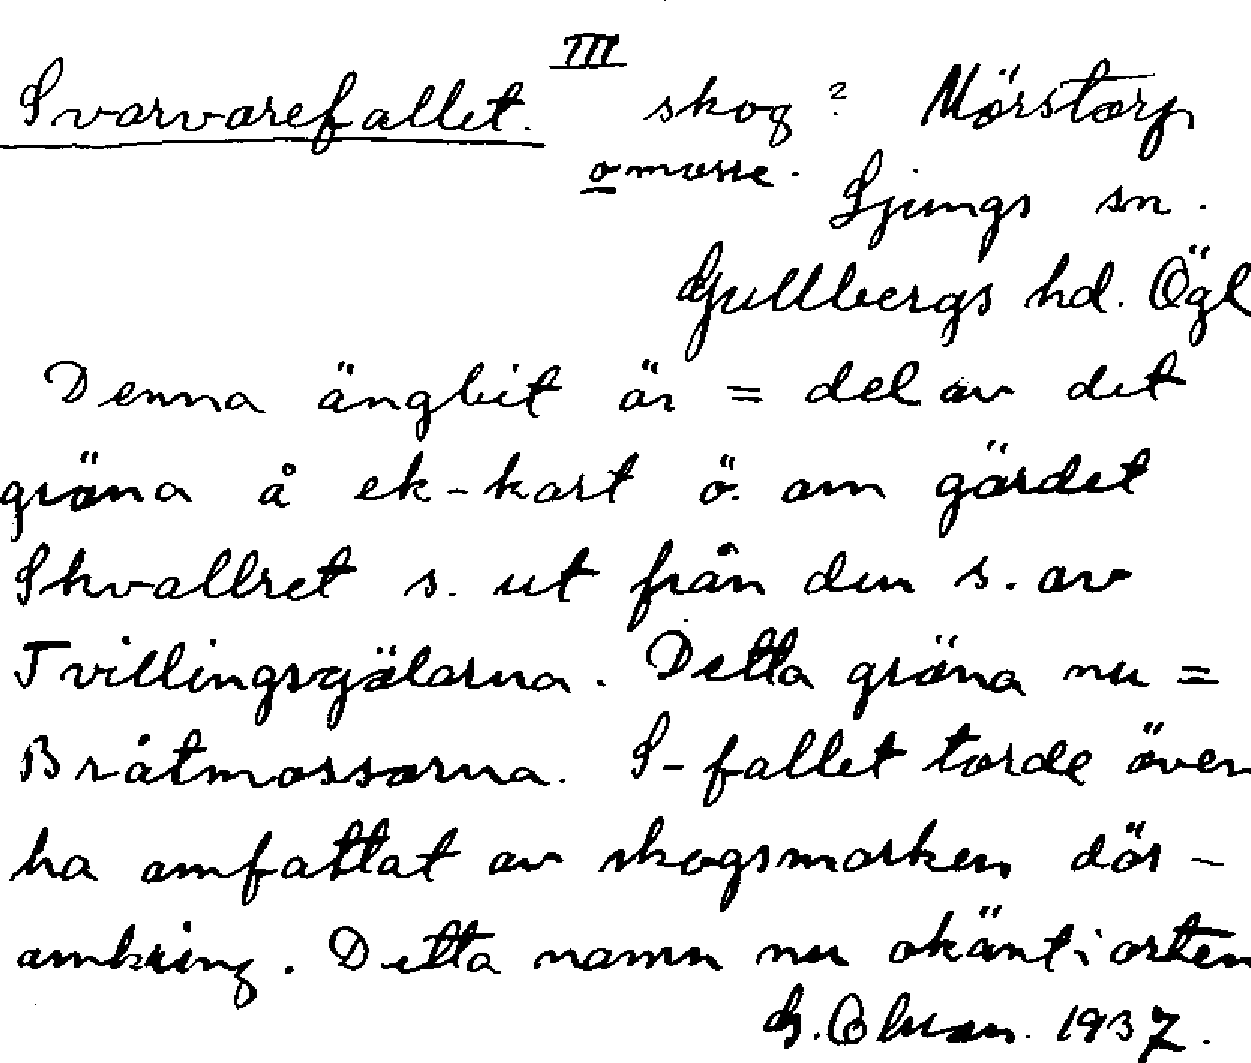 III
Svarvarefallet. skog? Mörstorp
o mosse. Ljungs sn.
Gullbergs hd. Ögl
Denna ängbit är = del av det
gröna å ek-kart ö. om gärdet
Skvallret s. ut från den s. av
Tvillingsgölarna. Detta gröna nu =
Bråtmossarna. S-fallet torde även
ha omfattat av skogsmarken där-
omkring. Detta namn nu okänt i orten
G. 1937.